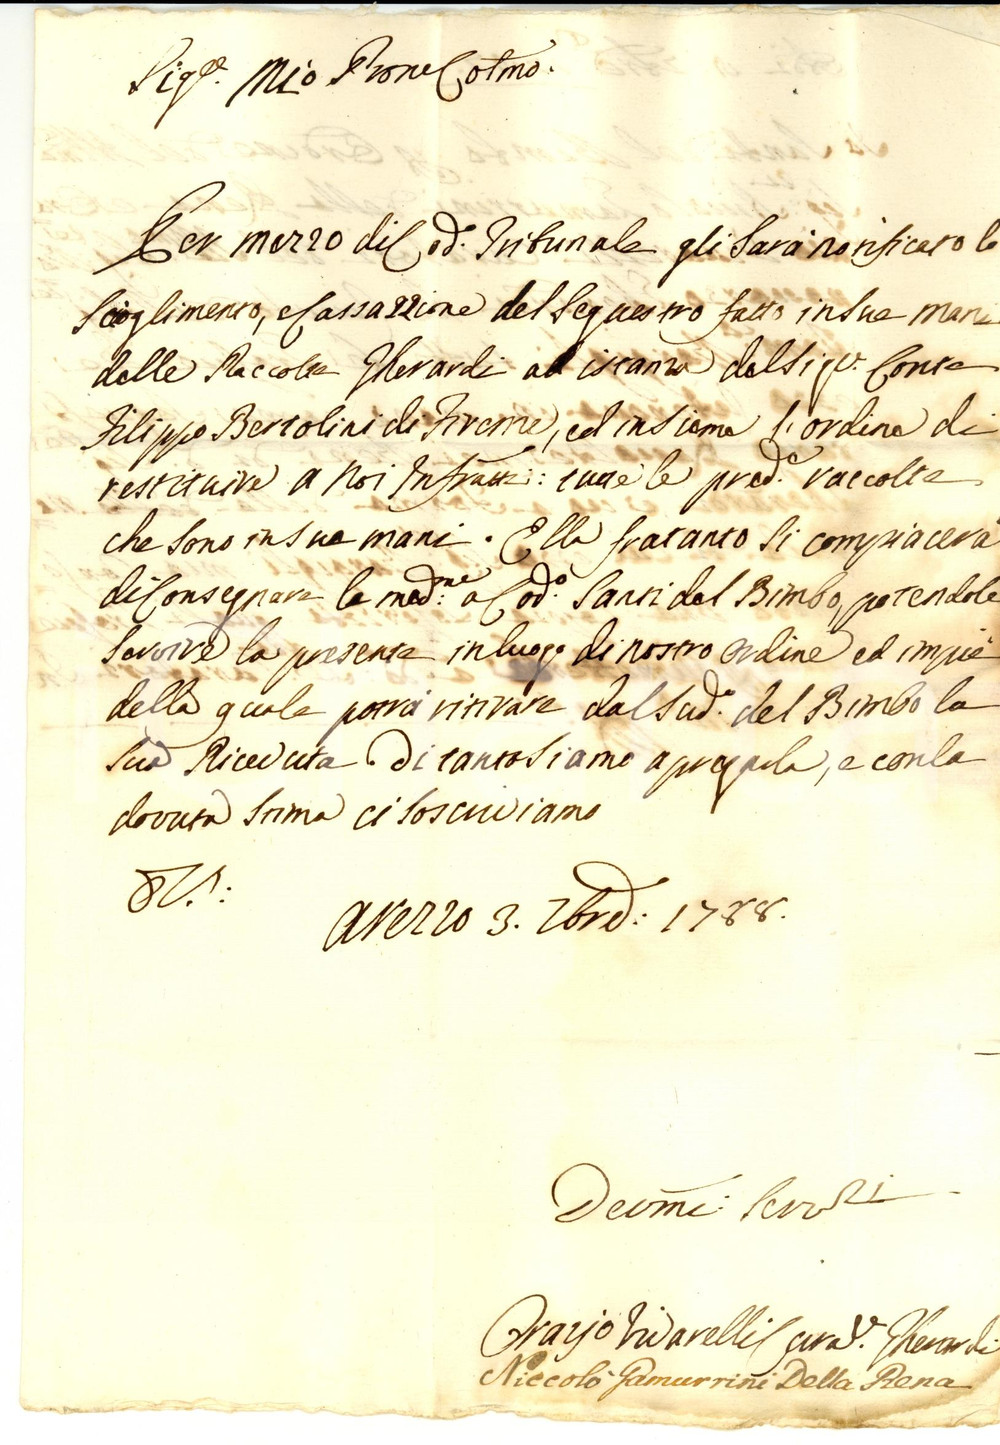 Sig.re Mio Prone Colmo.
Per mezzo di Cod.o Tribunale gli sarà notificato lo
Scioglimento, e Cassazzione del Sequestro fatto in sue mani
delle Raccolte Gherardi ad istanza del Sig.r Conte
Filippo Bertolini di Firenze, ed insieme l'ordine di
restituire a Noi Infratti: tutte le pred.e raccolte
che sono in sue mani. Ella fratanto si compiacerà
di Consegnare le med.me a Cod.o Santi del Bimbo, potendole
servire la presente in luogo di nostro Ordine ed impiè
della quale potrà ritirare dal Sud.o del Bimbo la
sua Ricevuta Di tanto siamo a pregarla, e con la
dovuta stima ci soscriviamo
VS.:
Arezzo 3. 7bre: 1788.
Devmi: Servri
Orazio Vivarelli Curat.e Gherardi
Niccolò Gamurrini Della Rena